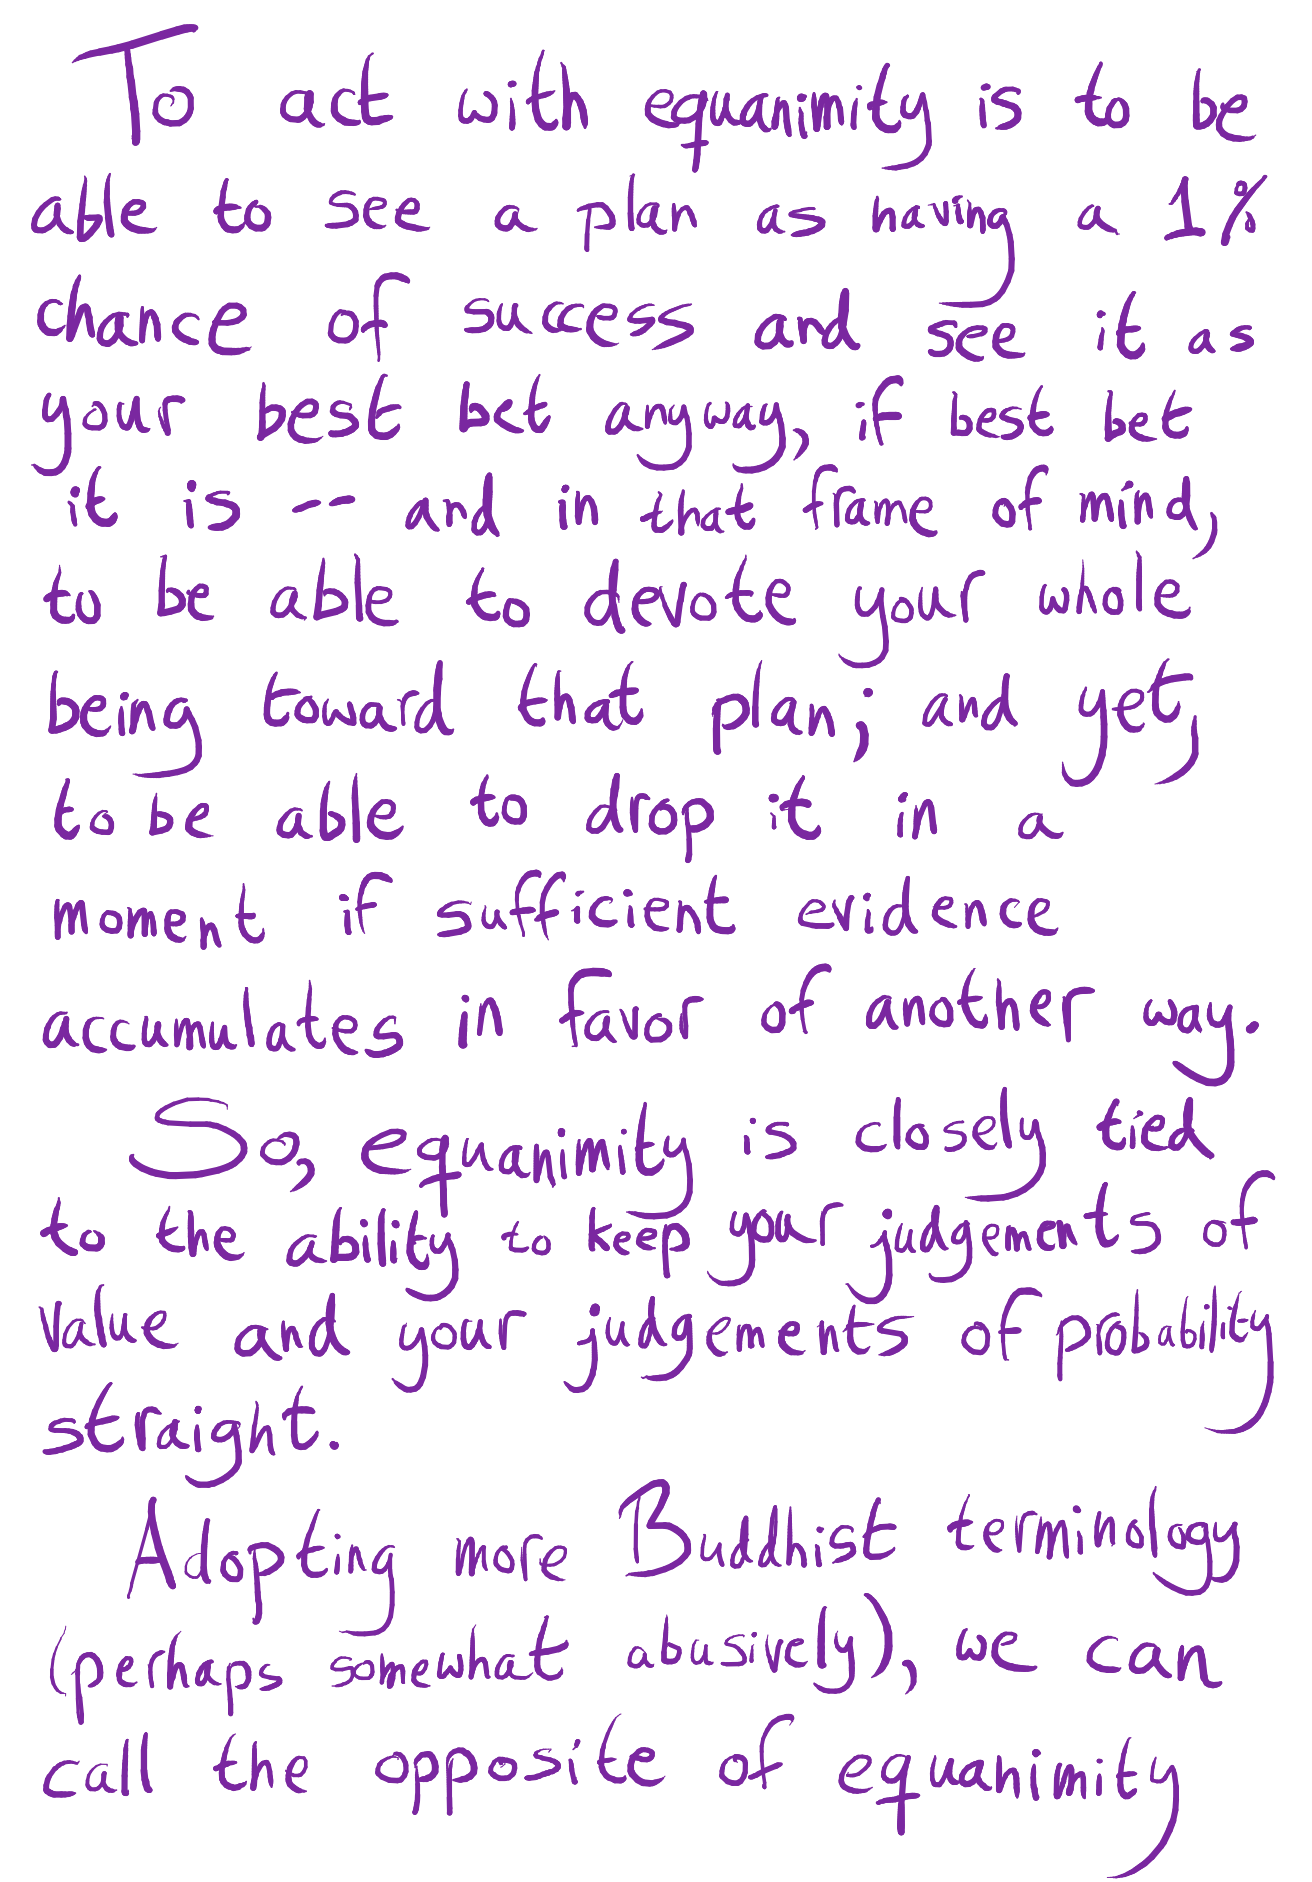 To act with equanimity is to be
able to see a plan as having a 1%
chance of success and see it as
your best bet anyway, if best bet
it is -- and in that frame of mind,
to be able to devote your whole
being toward that plan; and yet,
to be able to drop it in a
moment if sufficient evidence
accumulates in favor of another way.
So, equanimity is closely tied
to the ability to keep your judgements of
value and your judgements of probability
straight.
Adopting more Buddhist terminology
(perhaps somewhat abusively), we can
call the opposite of equanimity